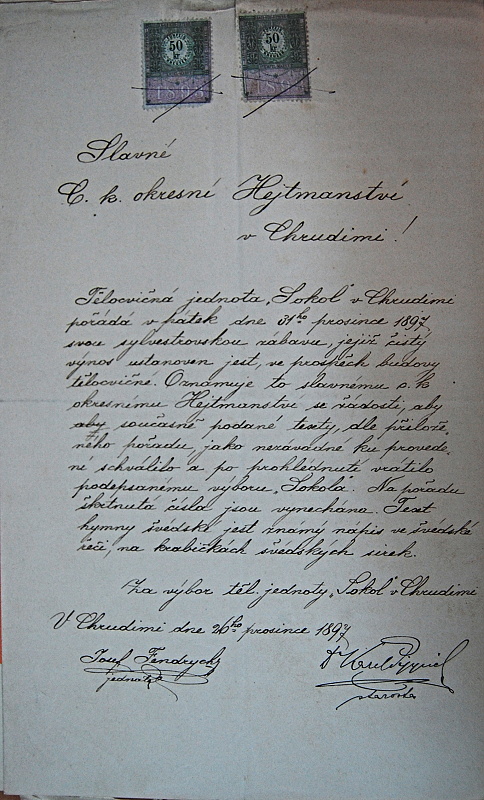 50 kr 50 kr
1898 1898
Slavné
C. k. okresní Hejtmanství
v Chrudimi!
Tělocvičná jednota „Sokol" v Chrudimi
pořádá v pátek dne 31ho prosince 1897,
svou sylvestrovskou zábavu, jejíž čistý
výnos ustanoven jest, ve prospěch budovy
tělocvičné. Oznamuje to slavnému c. k
okresnímu Hejtmanství se žádostí, aby
aby současně podané texty, dle přilože-
ného pořadu, jako nezávadné ku provede-
ní schválilo a po prohlédnutí vrátilo
podepsanému výboru „Sokola". Na pořadu
škrtnutá čísla jsou vynechána. Text
hymny švédské jest známý nápis ve švédské
řeči, na krabičkách švédských sirek.
Za výbor těl. jednoty „Sokol" v Chrudimi
V Chrudimi dne 26ho prosince 1897
Josef Fendrych Dr Karel Pippich
jednatel starosta